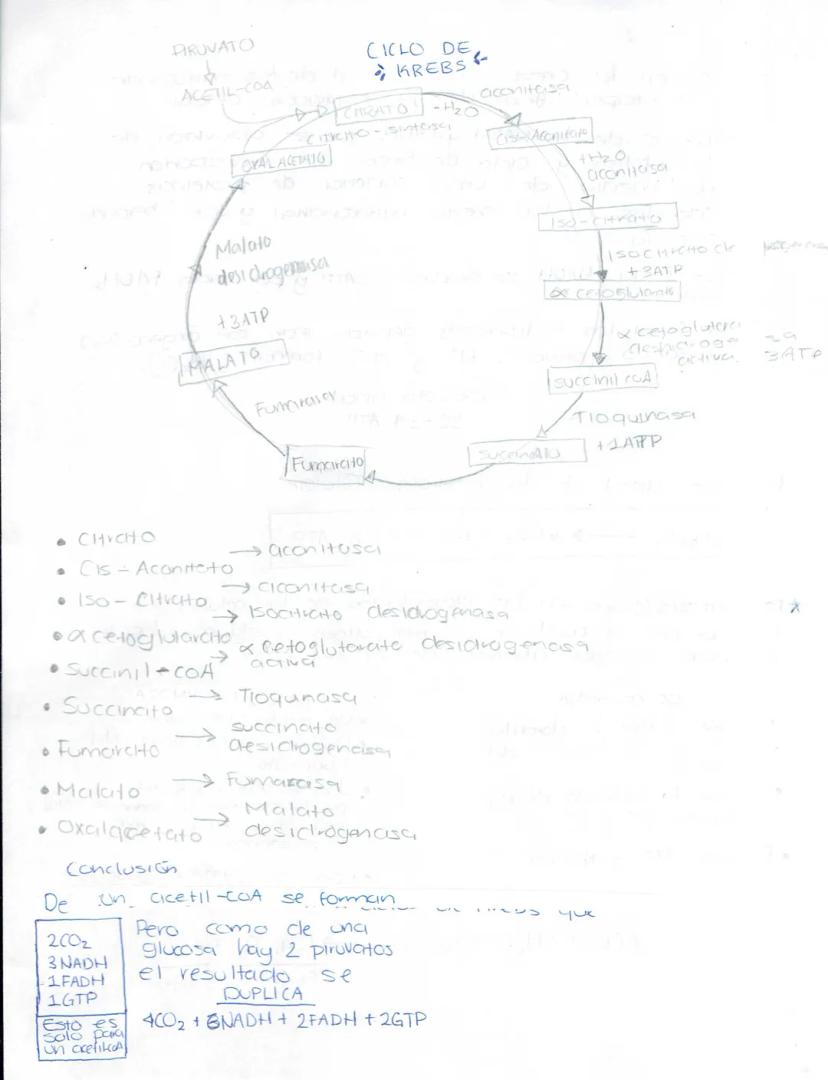 PIRUVATO
CICLO DE
KREBS
ACETIL-COA
CITRATO
-H2O
aconitasa
citrato-sintasa
Cis-Aconitato
OXALACETATO
+H2O
aconitasa
Iso-citrato
Malato
desidrogenasa
isocitrato de
+3ATP
α cetoglutarato
+3ATP
α cetoglutara
activa
3ATP
MALATO
succinil coA
Fumarasa
Tioquinasa
+1ATP
Succinato
Fumarato
• Citrato
→ aconitasa
• Cis-Aconitato
→ aconitasa
• Iso-Citrato
→ Isocitrato desidrogenasa
• α cetoglutarato
→ α cetoglutarato desidrogenasa
activa
• Succinil-coA
→ Tioquinasa
• Succinato
→ succinato
desidrogenasa
• Fumarato
→ Fumarasa
• Malato
→ Malato
desidrogenasa
• Oxalacetato
Conclusión
De un acetil-COA se forman
que
2CO2
3NADH
1FADH
1GTP
Esto es
solo para
un acetilcoA
Pero como de una
glucosa hay 2 piruvatos
el resultado se
DUPLICA
4CO2 + 6NADH + 2FADH + 2GTP